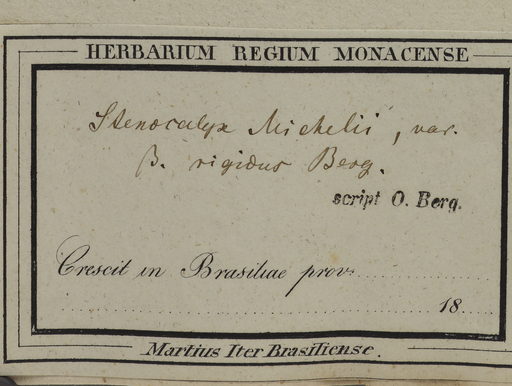 HERBARIUM REGIUM MONACENSE
Stenocalyx Michelii, var.
β. rigidus Berg.
script O. Berg.
Crescit in Brasiliae prov.
18
Martius Iter Brasiliense.